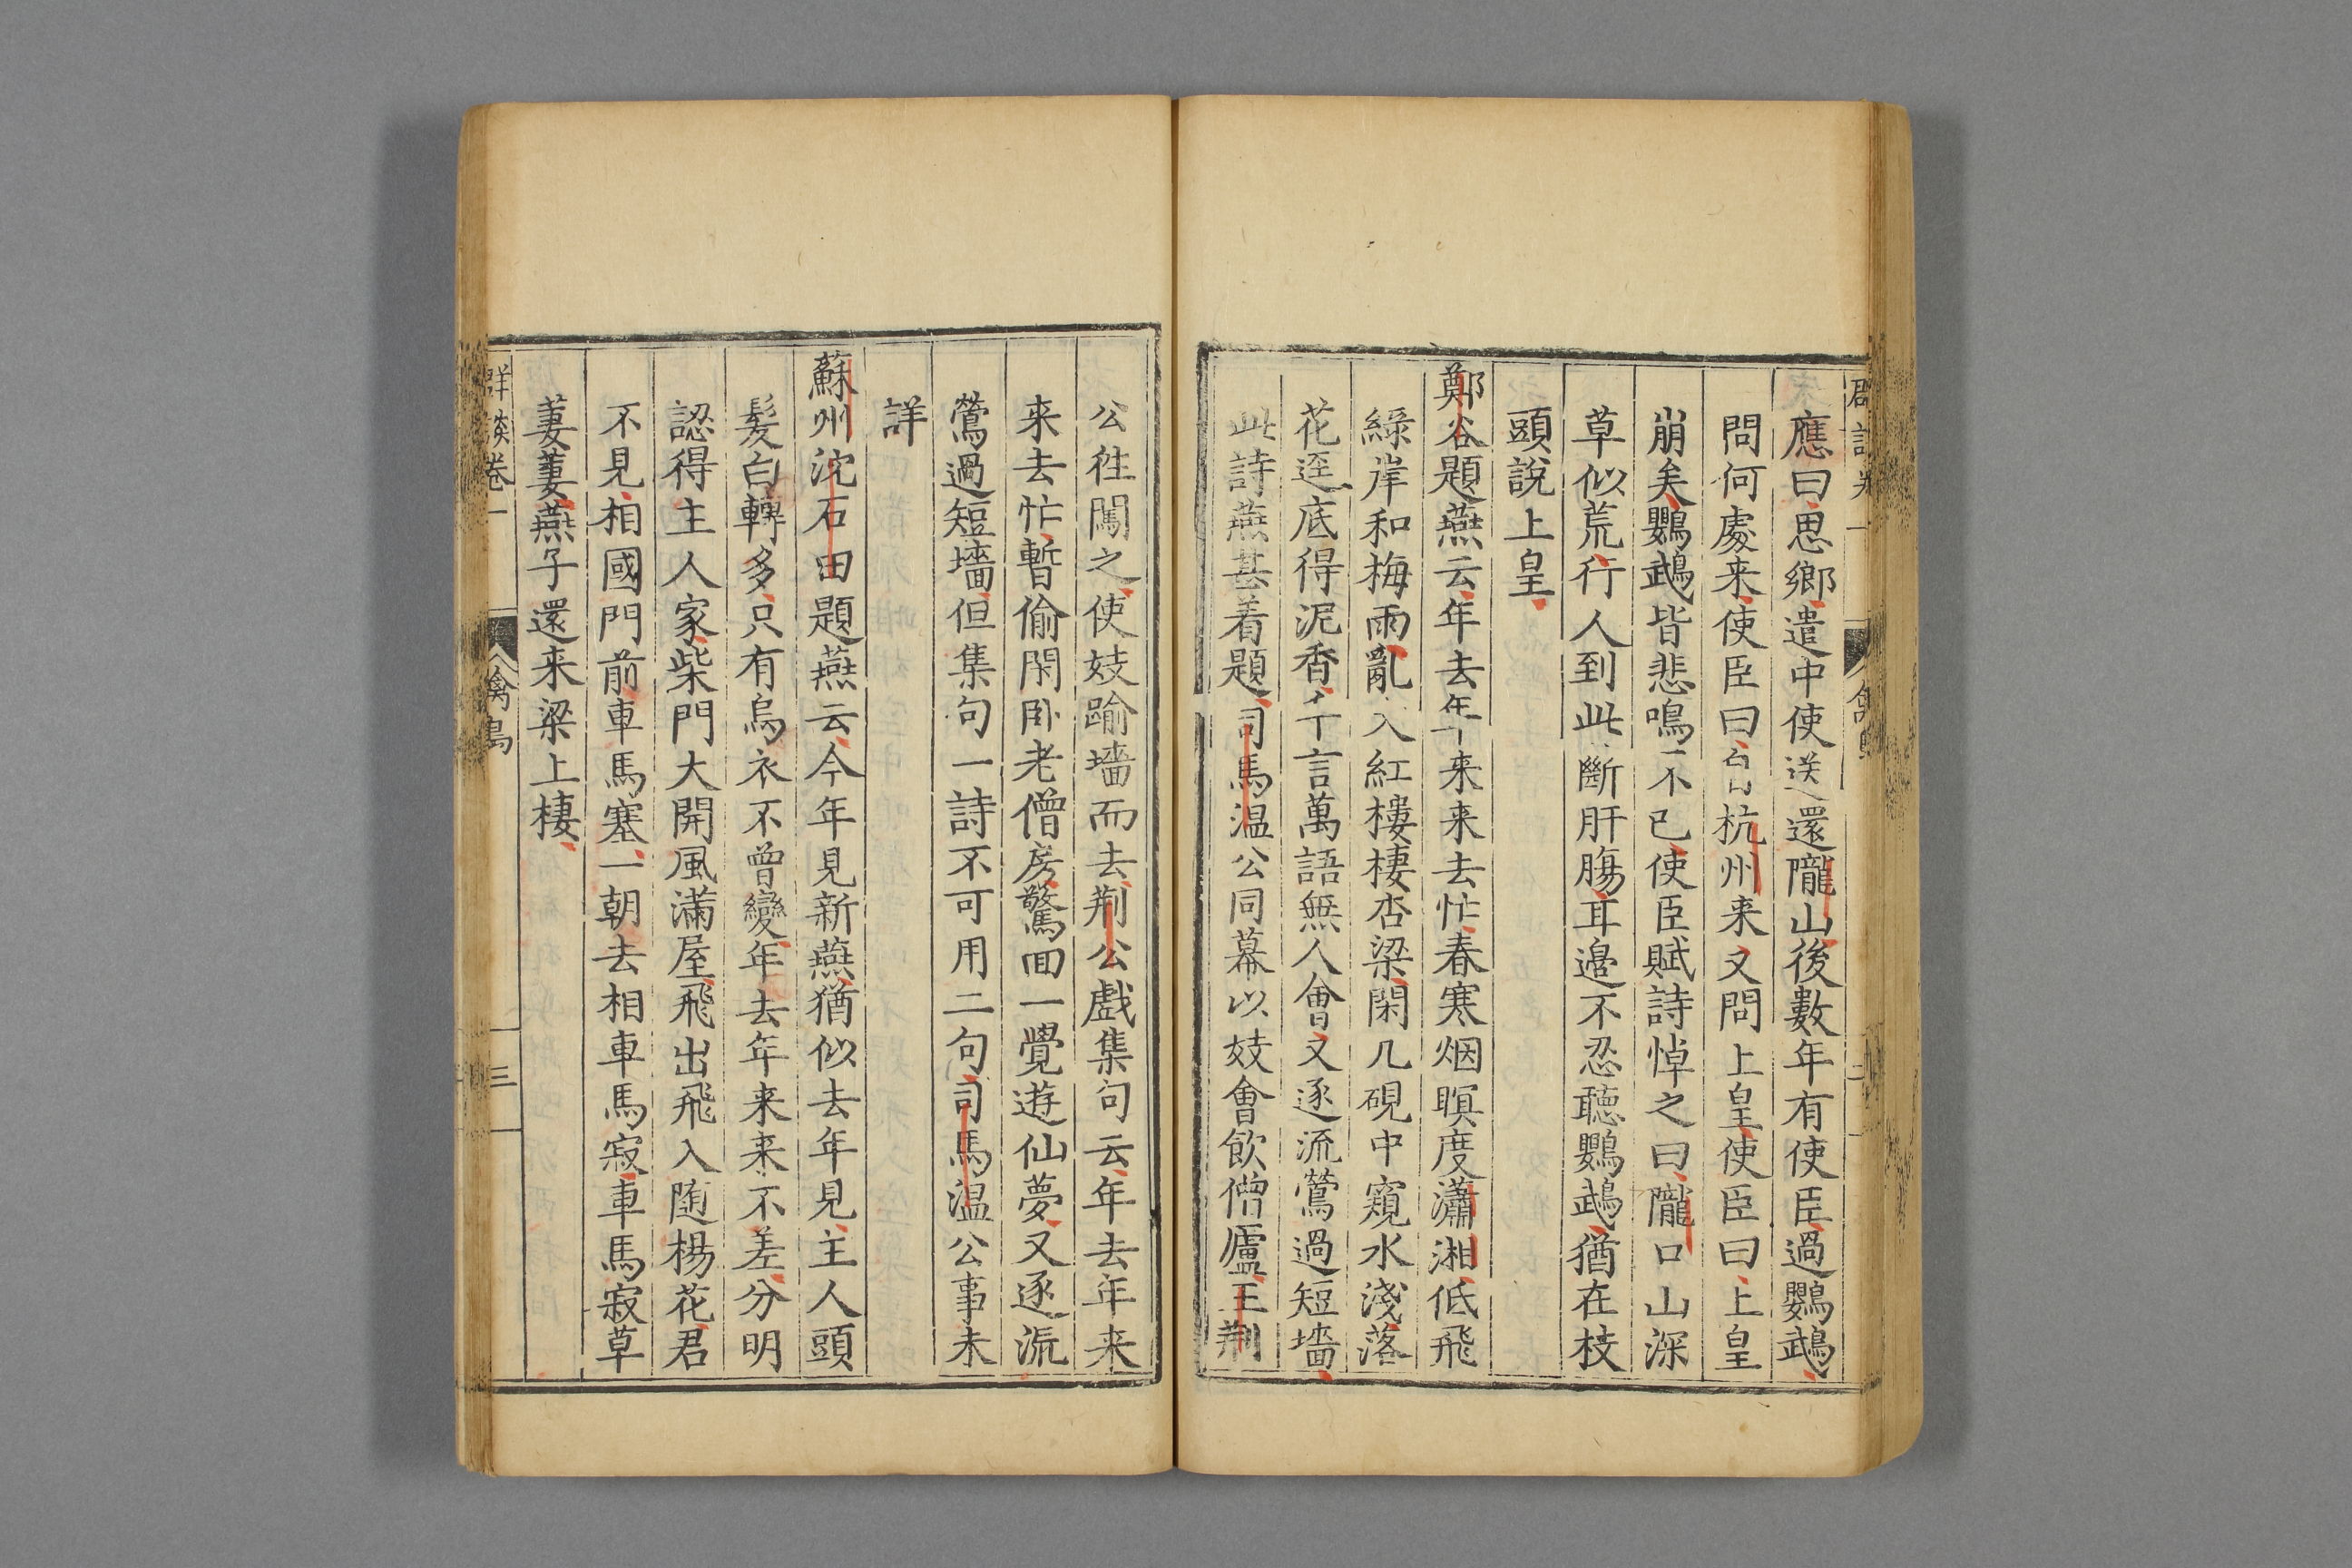 應曰思鄉遣中使送還隴山後數年有使臣過鸚鵡
問何處来使臣曰自杭州来又問上皇使臣曰上皇
崩矣鸚鵡皆悲鳴不已使臣賦詩悼之曰隴口山深
草似荒行人到此斷肝膓耳邉不忍聽鸚鵡猶在枝
頭說上皇
鄭谷題燕云年去年来来去忙春寒烟暝度瀟湘低飛
綠岸和梅雨亂入紅樓棲杏梁閑几硯中窺水淺落
花逕底得泥香千言萬語無人會又逐流鶯過短墻
此詩燕甚着題司馬温公同幕以妓會飲僧廬王荆
公徃闖之使妓踰墻而去荆公戲集句云年去年来
来去忙暫偷閑卧老僧房驚囬一覺遊仙夢又逐流
鶯過短墻但集句一詩不可用二句司馬温公事未
詳
蘇州沈石田題燕云今年見新燕猶似去年見主人頭
髪白轉多只有烏衣不曾變年去年来来不差分明
認得主人家柴門大開風滿屋飛出飛入随楊花君
不見相國門前車馬塞一朝去相車馬寂車馬寂草
萋萋燕子還来梁上棲
群談卷一
禽鳥
三